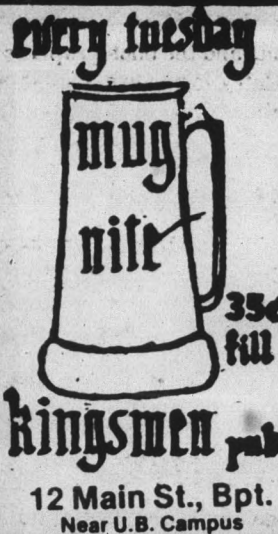 every tuesday
mug
nite
35¢
fill
kingsmen pub
12 Main St., Bpt.
Near U.B. Campus